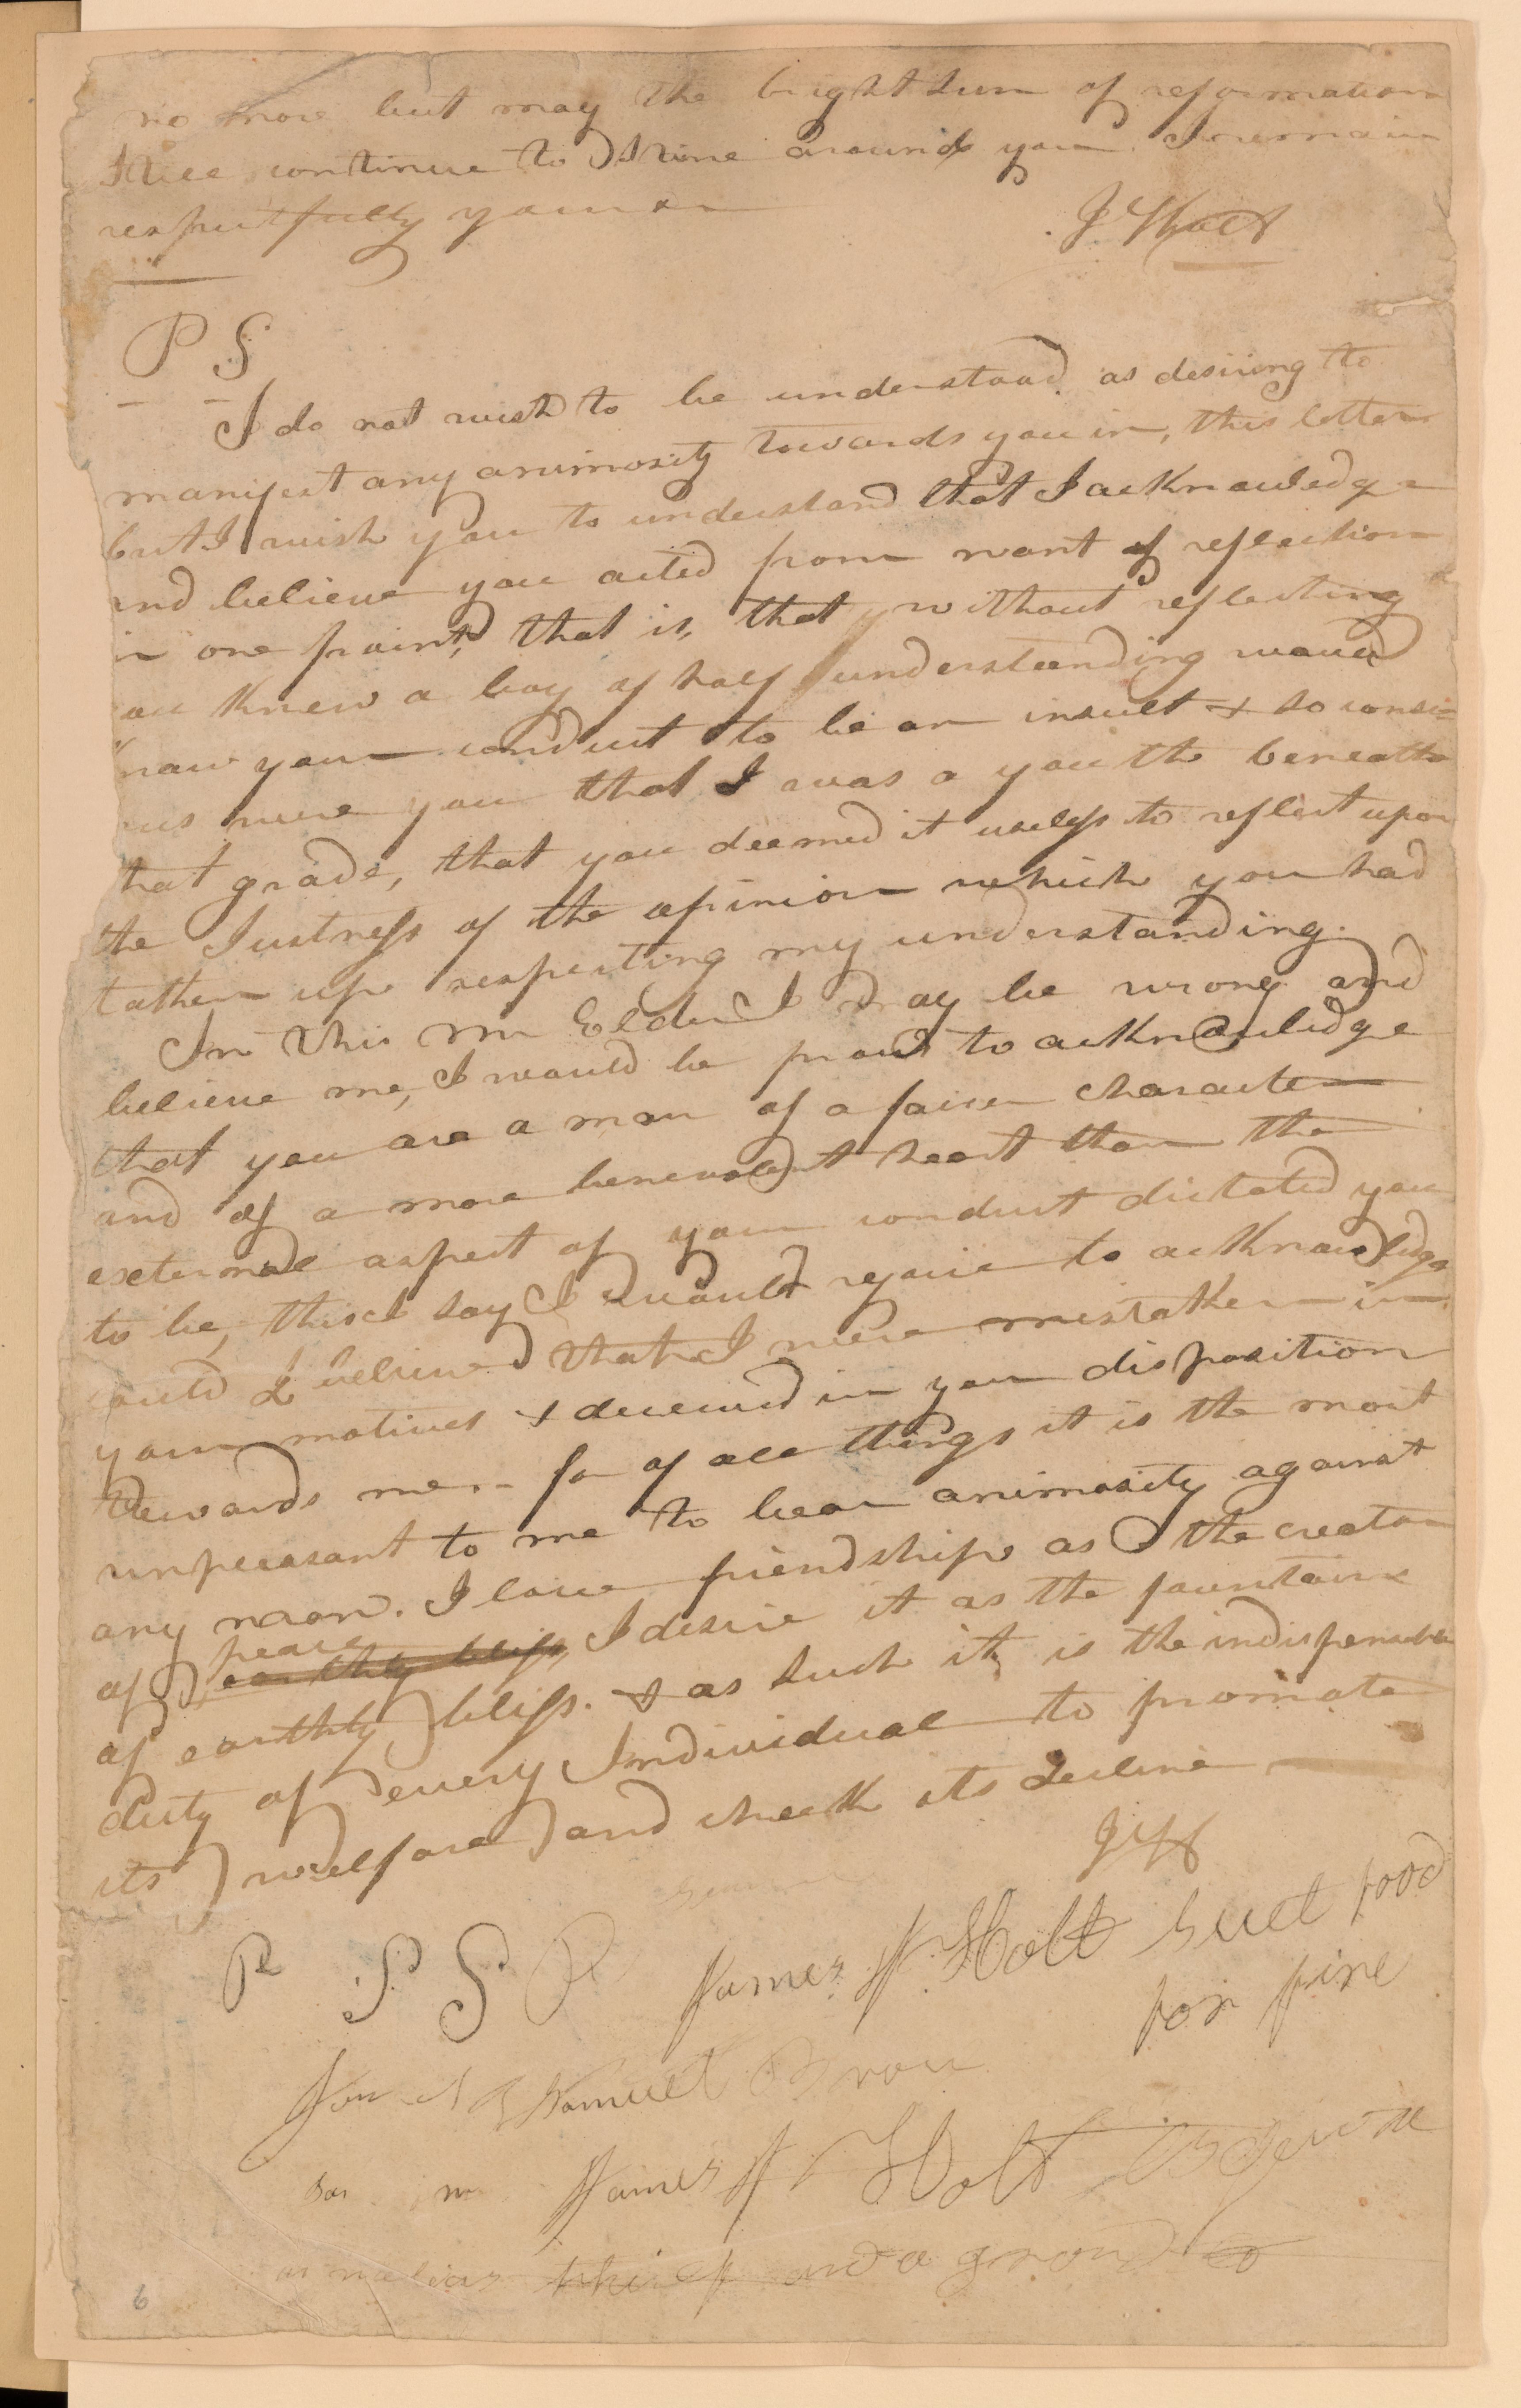 no more but may the bright sun of reformation
still continue to shine around you. I remain
respectfully yours
J Holt
P S
I do not wish to be understood as desiring to
manifest any animosity towards you in, this letter
but I wish you to understand that I acknowledge
and believe you acted from want of reflection
in one point, that is, that without reflecting
you knew a boy of half understanding would
know your conduct to be an insult & so consi-
ous were you that I was a youth beneath
that grade, that you deemed it useless to reflect upon
the Justness of the opinion which you had
taken up respecting my understanding.
In this Mr Elder I may be wrong and
believe me, I would be proud to acknowledge
that you are a man of a fairer character
and of a more benevolent heart than the
external aspect of your conduct dictated you
to be, this I say I would rejoice to acknowledge
could I believe that I were mistaken in
your motives & deceived in your disposition
towards me. - for of all things it is the most
unpleasant to me to bear animosity against
any man. I love friendship as the creator
of peace earthly bliss, I desire it as the fountain
of earthly bliss. & as such it is the indispensable
duty of every Individual to promote
its welfare and check its decline
J H
P S S P James H Holt suet food
for fine
Samuel Brou
James H Holt
thief and a grond
6